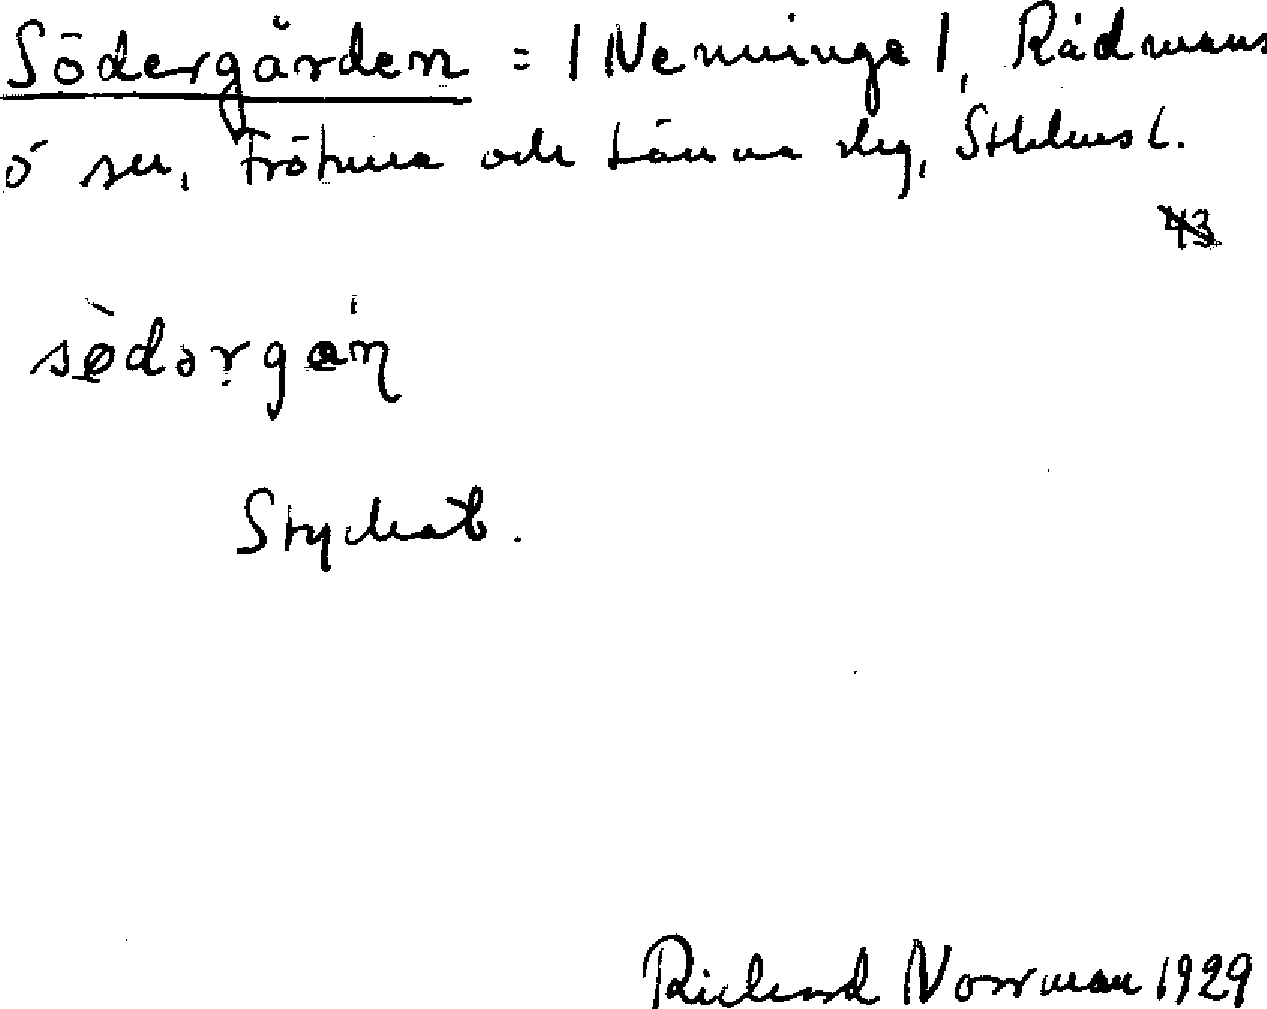 Södergården = | Nenninge |, Rådmans
ö sn, Frötuna och Länna slg, Sthlms l.
43
södərgan
Styckat.
Richard Norrman 1929